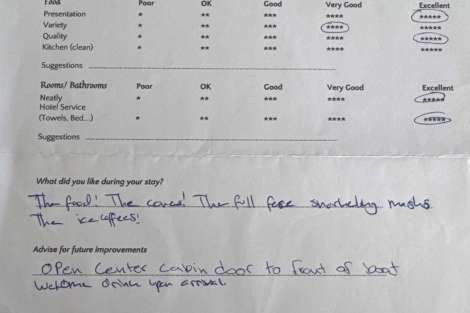 Food Poor OK Good Very Good Excellent
Presentation * ** *** **** *****
Variety * ** *** **** *****
Quality * ** *** **** *****
Kitchen (clean) * ** *** **** *****
Suggestions
Rooms/ Bathrooms Poor OK Good Very Good Excellent
Neatly * ** *** **** *****
Hotel Service
(Towels, Bed...) * ** *** **** *****
Suggestions
What did you like during your stay?
The food! The caves! The full face snorkeling masks
The ice coffees!
Advise for future improvements
Open center cabin door to front of boat
Welcome drink upon arrival